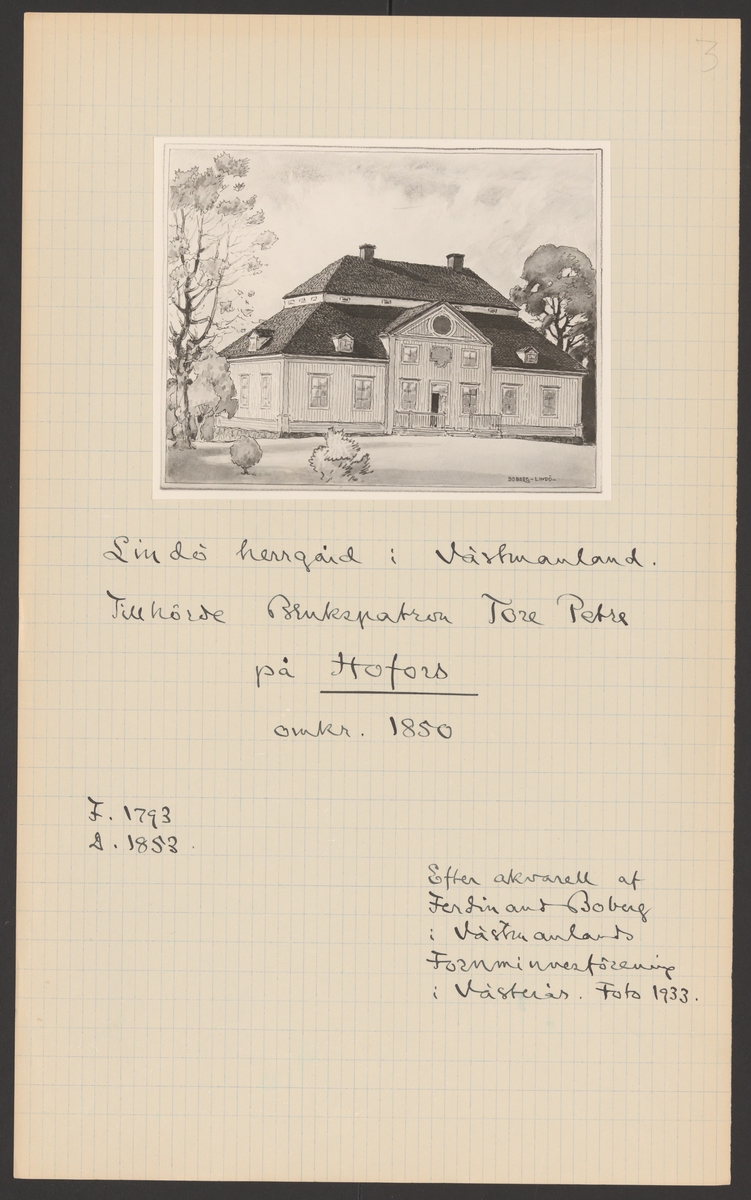 3
BOBERG - LINDÖ -
Lindö herrgård i Västmanland.
Tillhörde Brukspatron Tore Petre
på Hofors
omkr. 1850
F. 1793
D. 1853.
Efter akvarell af
Ferdinand Boberg
i Västmanlands
Fornminnesförening
i Västerås. Foto 1933.